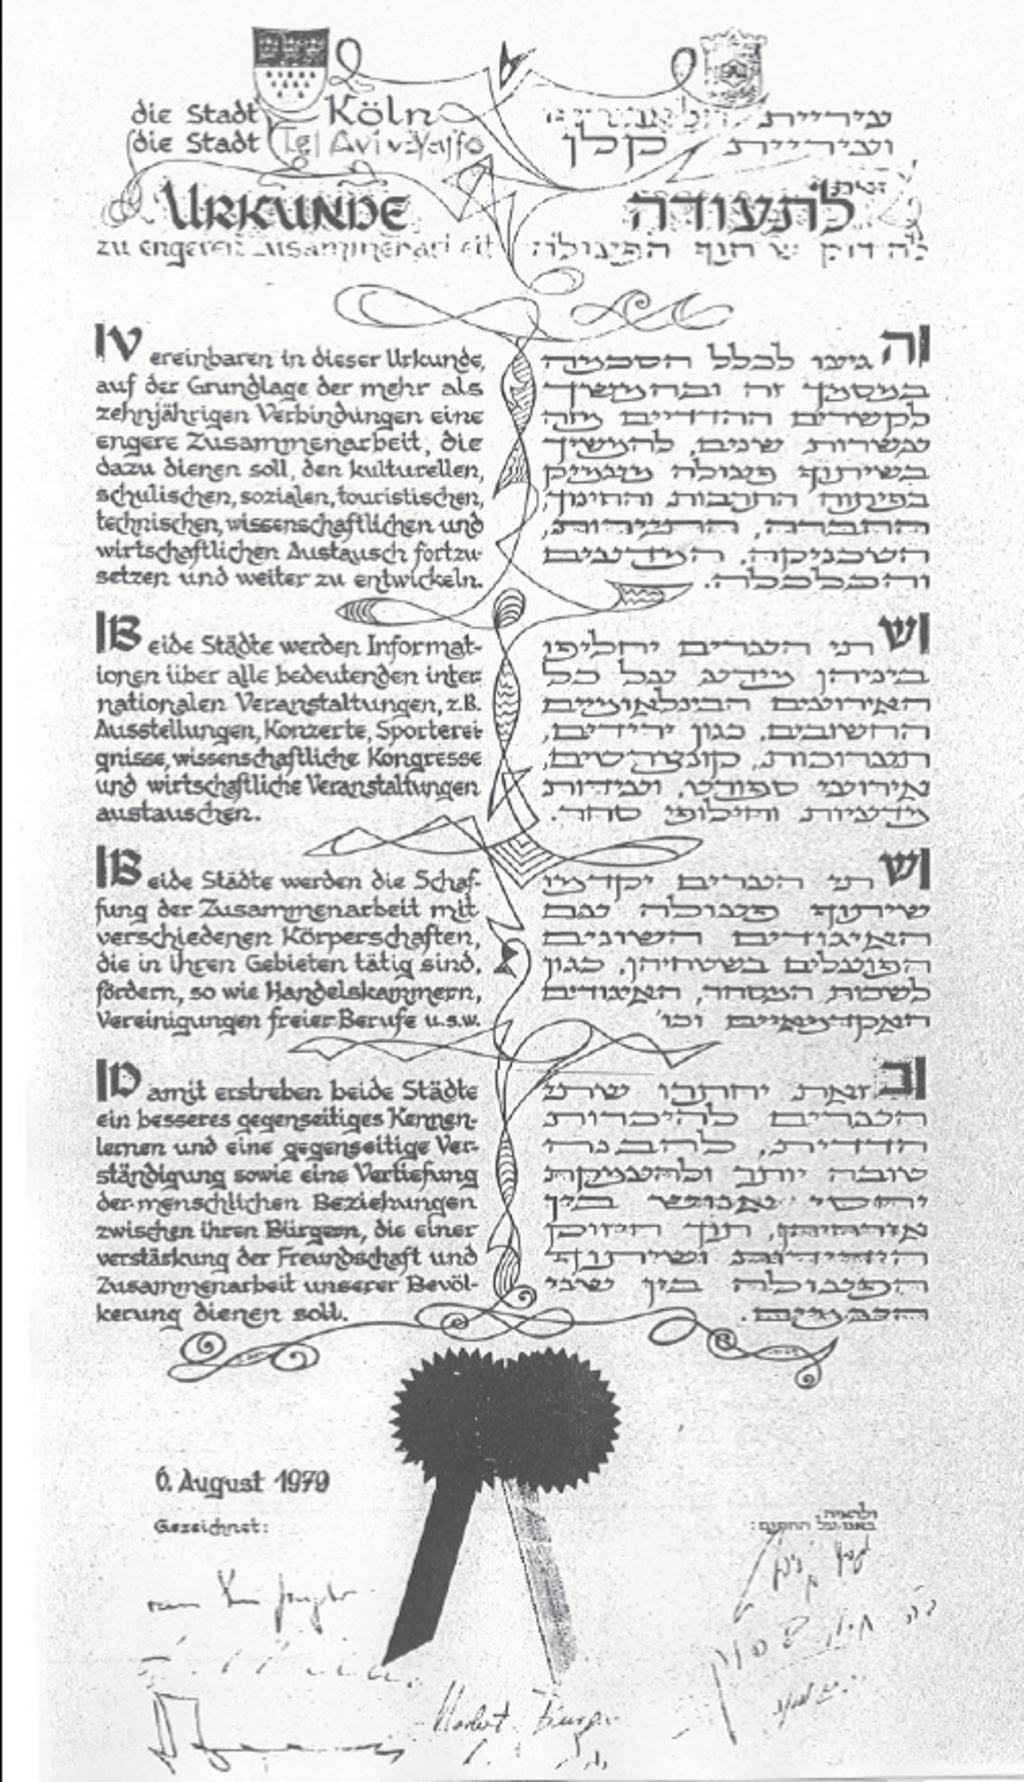 die Stadt Köln
die Stadt Tel Aviv-Yaffo
URKUNDE
zu engerer Zusammenarbeit
Vereinbaren in dieser Urkunde,
auf der Grundlage der mehr als
zehnjährigen Verbindungen eine
engere Zusammenarbeit, die
dazu dienen soll, den kulturellen,
schulischen, sozialen, touristischen,
technischen, wissenschaftlichen und
wirtschaftlichen Austausch fortzu-
setzen und weiter zu entwickeln.
Beide Städte werden Informat-
ionen über alle bedeutenden inter-
nationalen Veranstaltungen, z.B.
Ausstellungen, Konzerte, Sporterei-
gnisse, wissenschaftliche Kongresse
und wirtschaftliche Veranstaltungen
austauschen.
Beide Städte werden die Schaf-
fung der Zusammenarbeit mit
verschiedenen Körperschaften,
die in ihren Gebieten tätig sind,
fördern, so wie Handelskammern,
Vereinigungen freier Berufe u.s.w.
Damit erstreben beide Städte
ein besseres gegenseitiges Kennen-
lernen und eine gegenseitige Ver-
ständigung sowie eine Vertiefung
der menschlichen Beziehungen
zwischen ihren Bürgern, die einer
verstärkung der Freundschaft und
Zusammenarbeit unserer Bevöl-
kerung dienen soll.
6. August 1979
Gezeichnet:
עיריית
ועיריית קלן
לתעודה
שתוף הפעולה
הגיעו לכלל הסכמה
במסמך זה ובהמשך
לקשרים ההדדיים מזה
עשרות שנים, להמשיך
בשיתוף פעולה מעמיק
בפיתוח התרבות והחינוך,
החברה, התיירות,
הטכניקה, המדעים
והכלכלה.
שתי הערים יחליפו
ביניהן מידע על כל
האירועים הבינלאומיים
החשובים, כגון ירידים,
תערוכות, קונצרטים,
אירועי ספורט, ועידות
מדעיות וחילופי סחר.
שתי הערים יקדמו
שיתוף פעולה עם
האיגודים השונים
הפועלים בשטחיהן, כגון
לשכות המסחר, האיגודים
האקדמאיים וכו'
בזאת יחתרו שתי
הערים להיכרות
הדדית, להבנה
טובה יותר ולהעמקת
יחסי אנוש בין
אזרחיהן, תוך חיזוק
הידידות ושיתוף
הפעולה בין שני
העמים.
ולראיה
באנו על החתום:
Norbert Burger